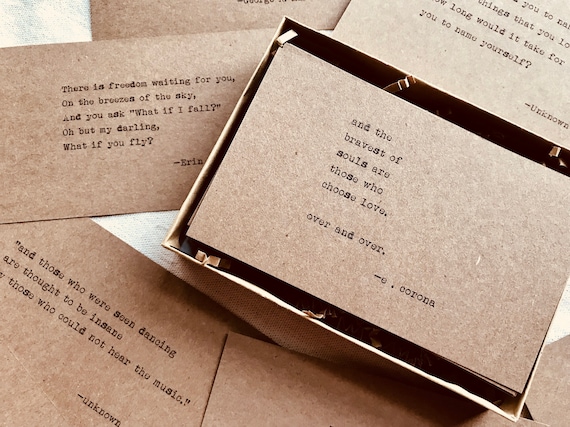 There is freedom waiting for you,
On the breezes of the sky,
And you ask "What if I fall?"
Oh but my darling,
What if you fly?
—Erin
and the
bravest of
souls are
those who
choose love.
over and over.
—e . corona
things that you lo
low long would it take for
you to name yourself?
—Unknown
"and those who were seen dancing
are thought to be insane
those who could not hear the music."
—unknown